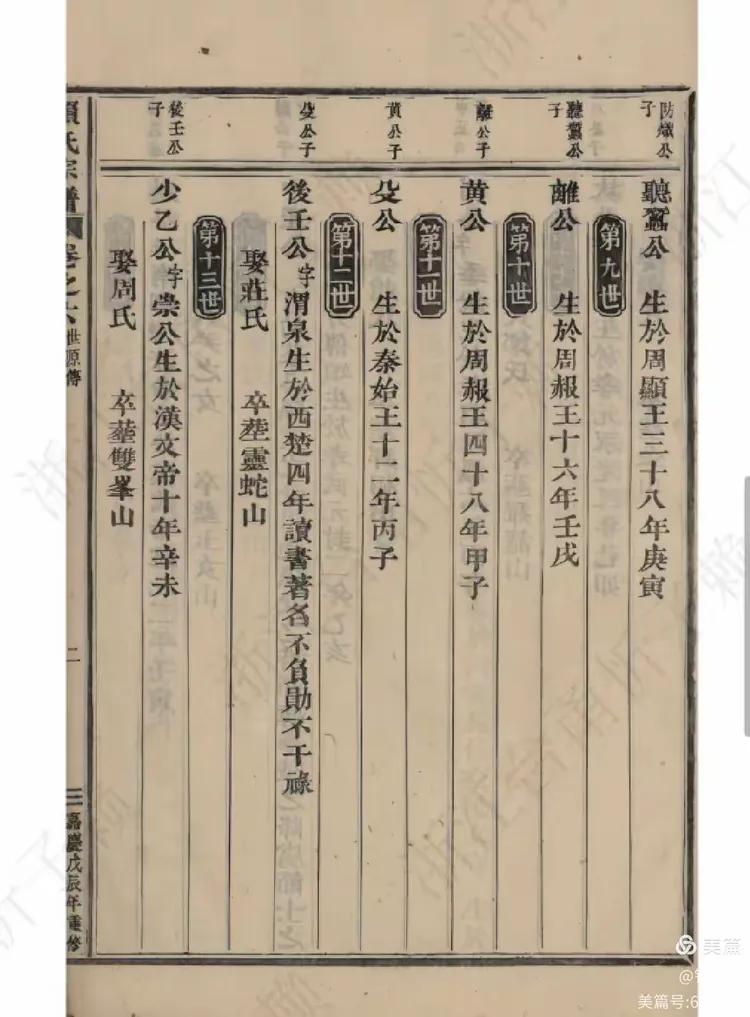 防熾公子
聽蠶公 生於周顯王三十八年庚寅
第九世
聽蠶公子
離公 生於周赧王十六年壬戌
第十世
離公子
黃公 生於周赧王四十八年甲子
第十一世
黃公子
殳公 生於秦始王十二年丙子
第十二世
殳公子
後壬公字渭泉生於西楚四年讀書著名不負勛不干祿
娶莊氏 卒塟靈蛇山
第十三世
後壬公子
少乙公字崇公生於漢文帝十年辛未
娶周氏 卒塟雙峯山
氏宗譜
卷之六 世源傳
二
嘉慶戊辰年重修
美篇
美篇号:6